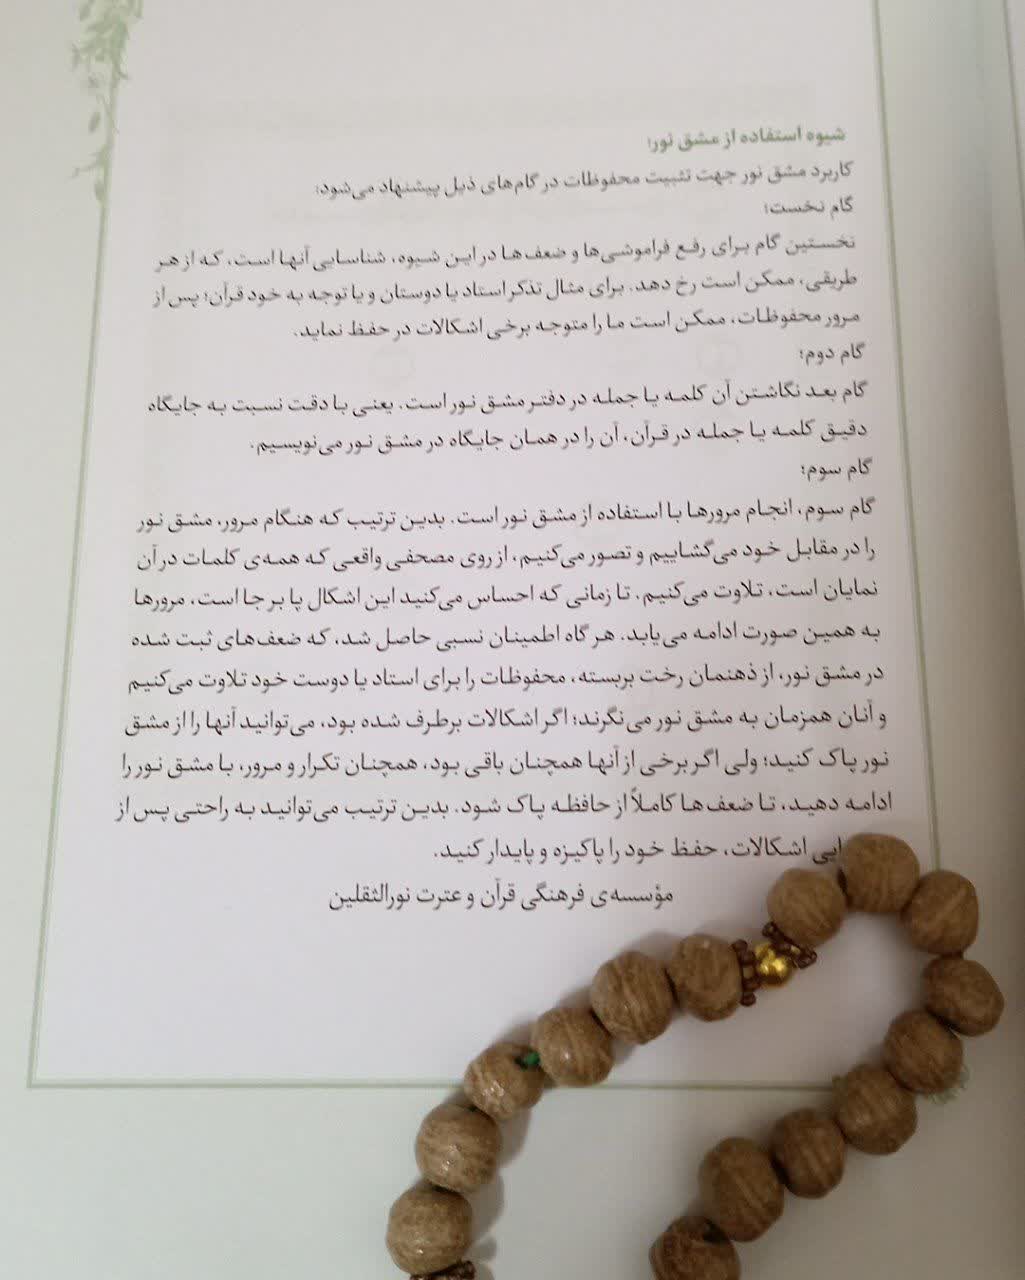 شیوه استفاده از مشق نور؛
کاربرد مشق نور جهت تثبیت محفوظات در گام‌های ذیل پیشنهاد می‌شود:
گام نخست؛
نخستین گام برای رفع فراموشی‌ها و ضعف‌ها در این شیوه، شناسایی آنها است، که از هر
طریقی، ممکن است رخ دهد. برای مثال تذکر استاد یا دوستان و یا توجه به خود قرآن؛ پس از
مرور محفوظات، ممکن است ما را متوجه برخی اشکالات در حفظ نماید.
گام دوم؛
گام بعد نگاشتن آن کلمه یا جمله در دفتر مشق نور است. یعنی با دقت نسبت به جایگاه
دقیق کلمه یا جمله در قرآن، آن را در همان جایگاه در مشق نور می‌نویسیم.
گام سوم؛
گام سوم، انجام مرورها با استفاده از مشق نور است. بدین ترتیب که هنگام مرور، مشق نور
را در مقابل خود می‌گشاییم و تصور می‌کنیم، از روی مصحفی واقعی که همه‌ی کلمات در آن
نمایان است، تلاوت می‌کنیم. تا زمانی که احساس می‌کنید این اشکال پا بر جا است، مرورها
به همین صورت ادامه می‌یابد. هر گاه اطمینان نسبی حاصل شد، که ضعف‌های ثبت شده
در مشق نور، از ذهنمان رخت بربسته، محفوظات را برای استاد یا دوست خود تلاوت می‌کنیم
و آنان همزمان به مشق نور می‌نگرند؛ اگر اشکالات برطرف شده بود، می‌توانید آنها را از مشق
نور پاک کنید؛ ولی اگر برخی از آنها همچنان باقی بود، همچنان تکرار و مرور، با مشق نور را
ادامه دهید، تا ضعف‌ها کاملاً از حافظه پاک شود. بدین ترتیب می‌توانید به راحتی پس از
اشکالات، حفظ خود را پاکیزه و پایدار کنید.
مؤسسه‌ی فرهنگی قرآن و عترت نورالثقلین